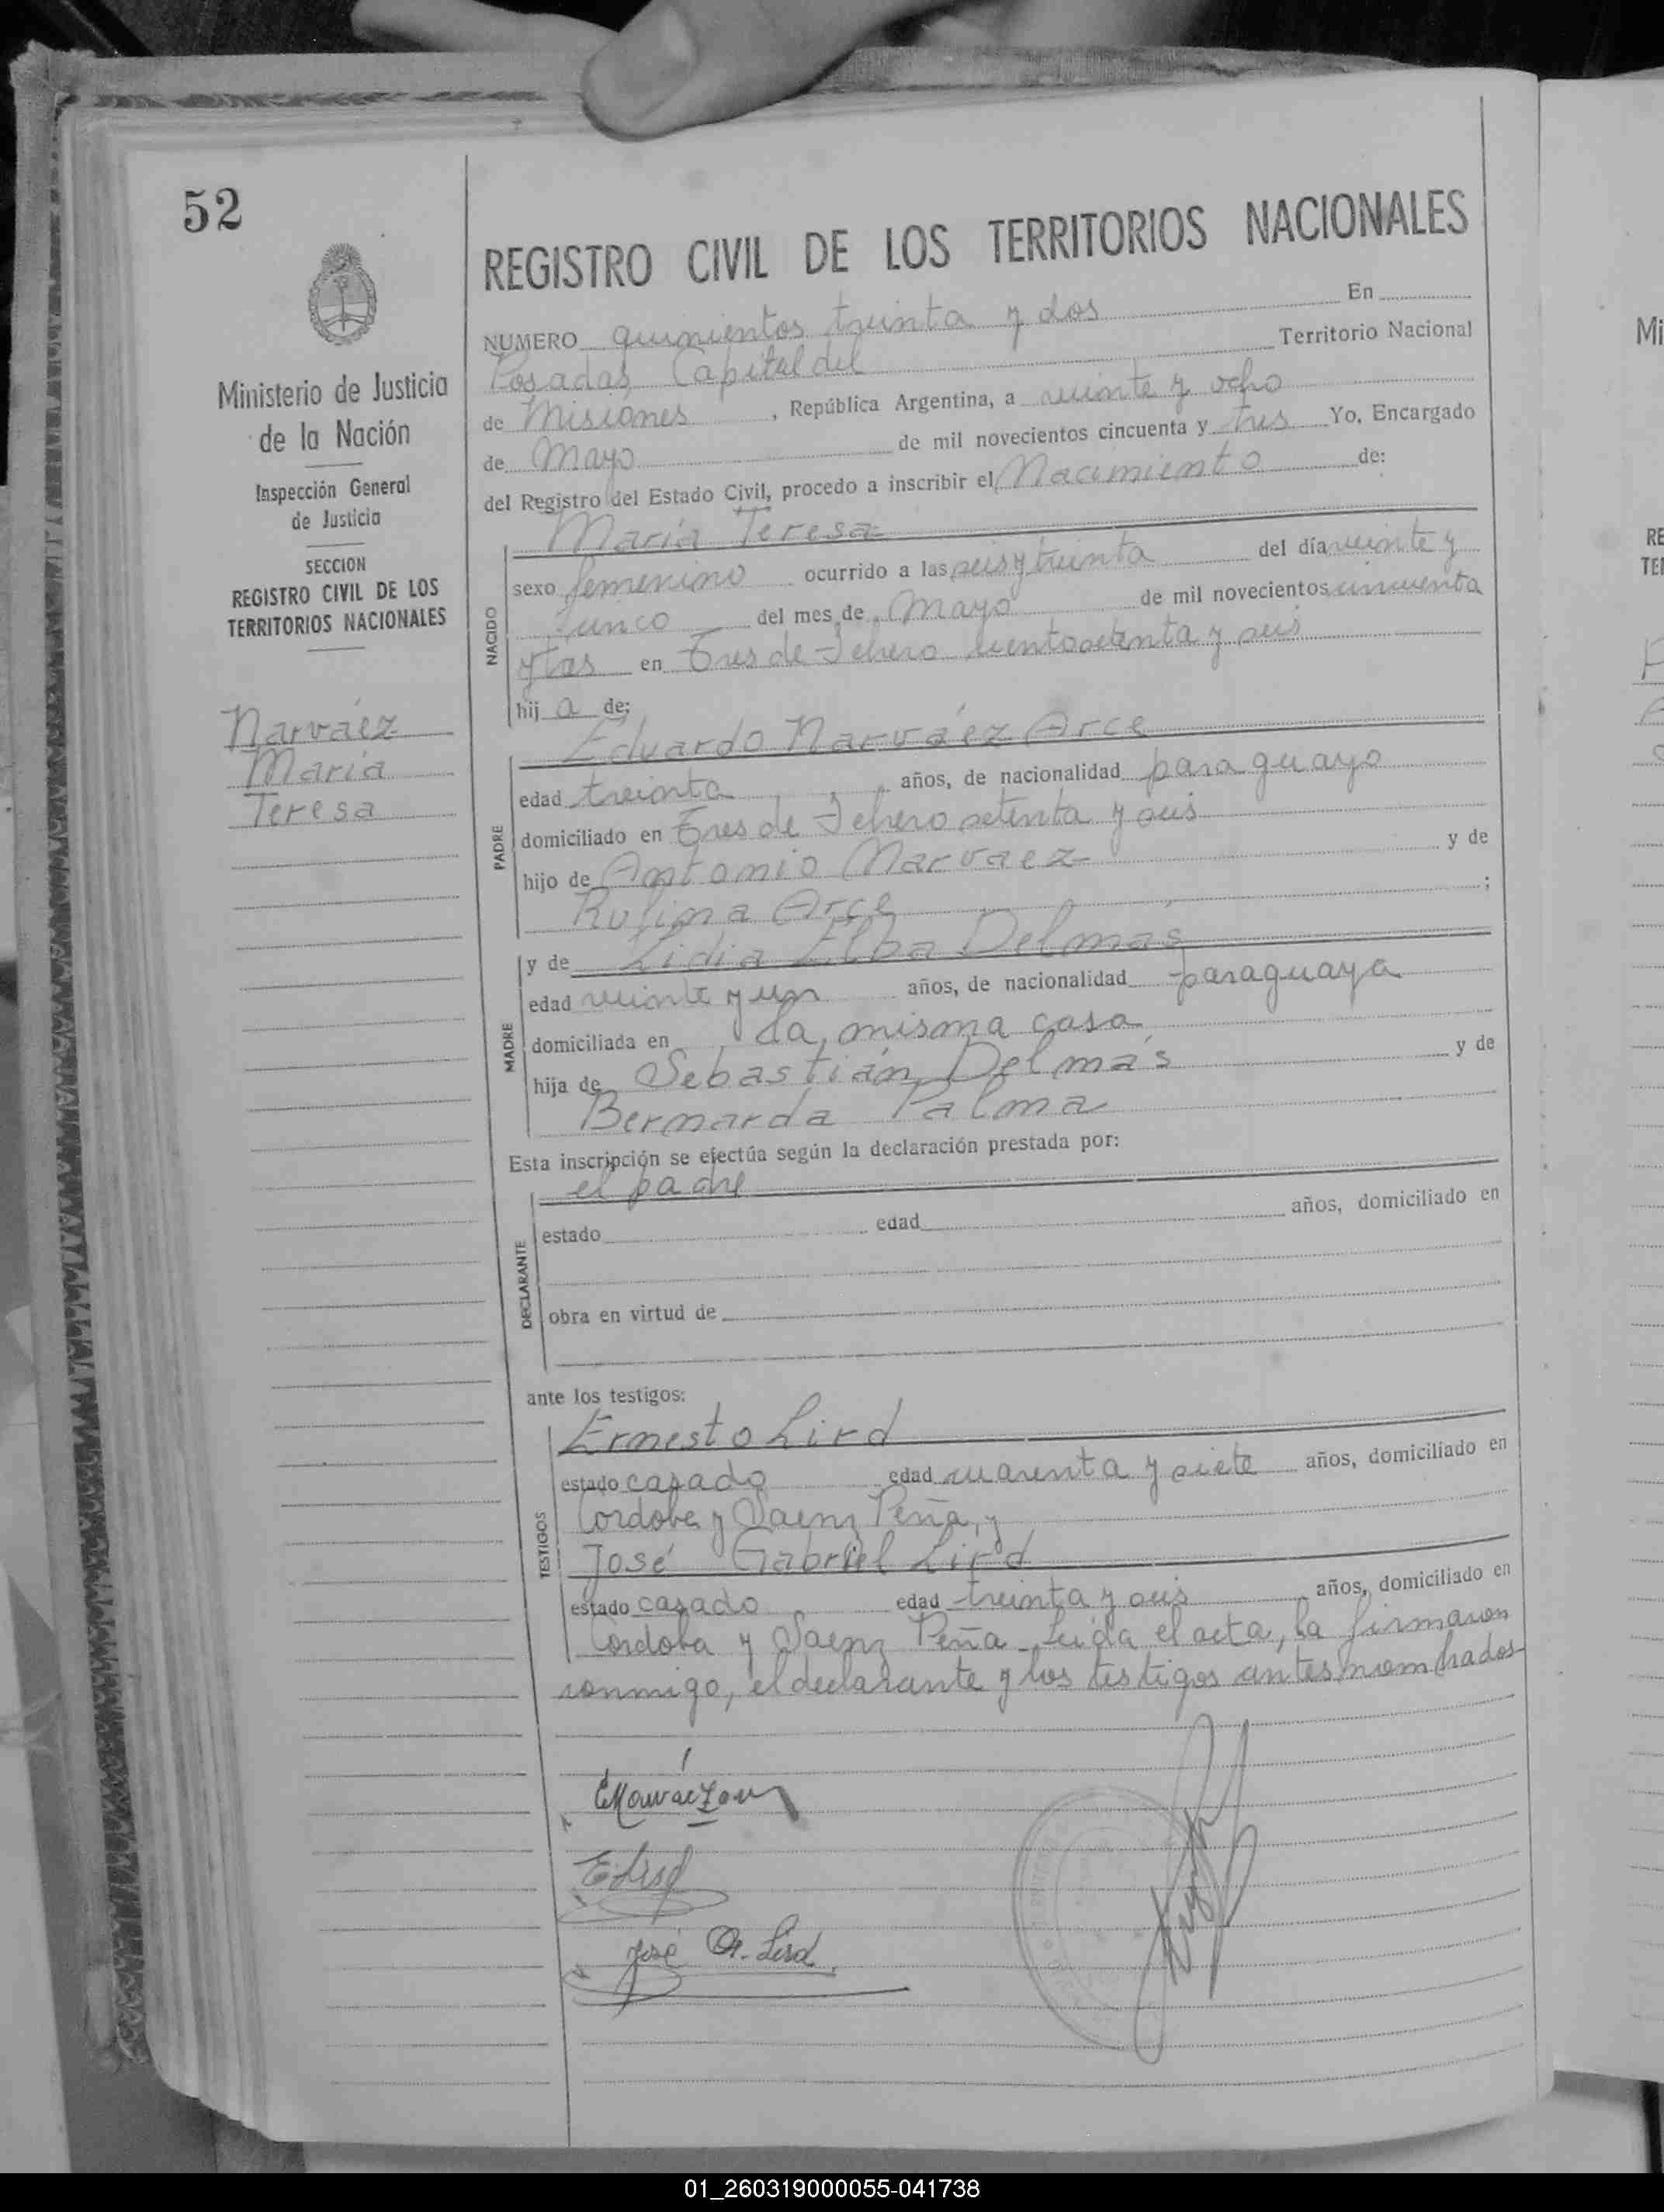 52
Ministerio de Justicia
de la Nación
Inspección General
de Justicia
SECCION
REGISTRO CIVIL DE LOS
TERRITORIOS NACIONALES
Narváez
María
Teresa
REGISTRO CIVIL DE LOS TERRITORIOS NACIONALES
NUMERO quinientos treinta y dos En
Posadas, Capital del Territorio Nacional
de Misiones, República Argentina, a veinte y ocho
de Mayo de mil novecientos cincuenta y tres Yo, Encargado
del Registro del Estado Civil, procedo a inscribir el Nacimiento de:
NACIDO
María Teresa
sexo femenino ocurrido a las seis y treinta del día veinte y
cinco del mes de Mayo de mil novecientos cincuenta
y tres en Tres de Febrero ciento setenta y seis
hij a de:
PADRE
Eduardo Narváez Arce
edad treinta años, de nacionalidad paraguayo
domiciliado en Tres de Febrero setenta y seis
hijo de Antonio Narvaez y de
Rufina Arce ;
MADRE
y de Lidia Elba Delmás
edad veinte y un años, de nacionalidad paraguaya
domiciliada en la misma casa
hija de Sebastián Delmás y de
Bernarda Palma
Esta inscripción se efectúa según la declaración prestada por:
DECLARANTE
el padre
estado edad años, domiciliado en
obra en virtud de
ante los testigos:
TESTIGOS
Ernesto Lird
estado casado edad cuarenta y siete años, domiciliado en
Cordoba y Saenz Peña, y
José Gabriel Lird
estado casado edad treinta y seis años, domiciliado en
Cordoba y Saenz Peña. Leida el acta, la firmaron
conmigo, el declarante y los testigos antes nombrados
E. Lird
José G. Lird
01_260319000055-041738